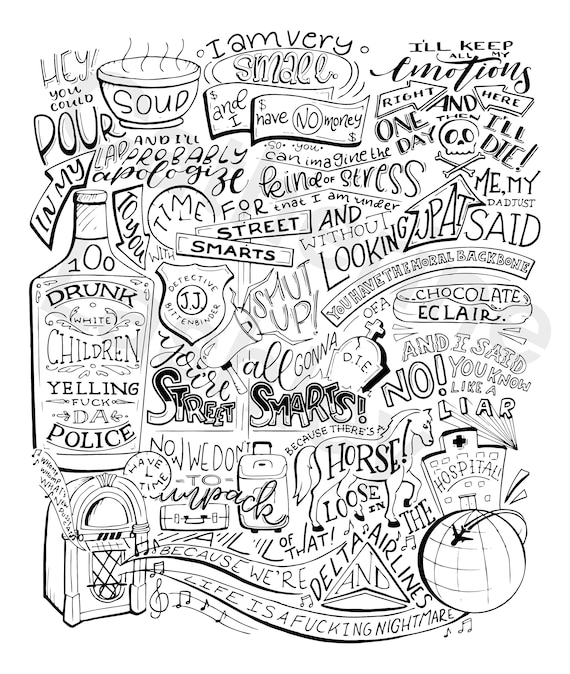 HEY!
YOU COULD
POUR
SOUP
IN MY
LAP
AND I'LL
PROBABLY
apologize
TO YOU
I am very
small
and I
$ $
have NO money
$ $
·So· you
can imagine the
kind of stress
that I am under
I'LL KEEP
ALL MY
emotions
RIGHT
HERE
AND
THEN
ONE
DAY
I'LL
DIE!
TIME
FOR
STREET
SMARTS
WITH
DETECTIVE
JJ
BITTENBINDER
SHUT
UP!
AND
WITHOUT
LOOKING
UP AT
ME, MY
DAD JUST
SAID
YOU HAVE THE MORAL BACKBONE
OF A
CHOCOLATE
ECLAIR
100
DRUNK
WHITE
CHILDREN
YELLING
FUCK
DA
POLICE
You're
all
GONNA
D.I.E.
STREET
SMARTS!
AND I SAID
NO!
YOU KNOW
LIKE A
LIAR
NOW WE DON'T
HAVE TIME
-TO-
unpack
ALL
OF THAT!
BECAUSE THERE'S A
HORSE!
LOOSE IN
THE
HOSPITAL!
WHAT'S NEW
BECAUSE WE'RE
DELTA AIRLINES
AND
LIFE IS A FUCKING NIGHTMARE